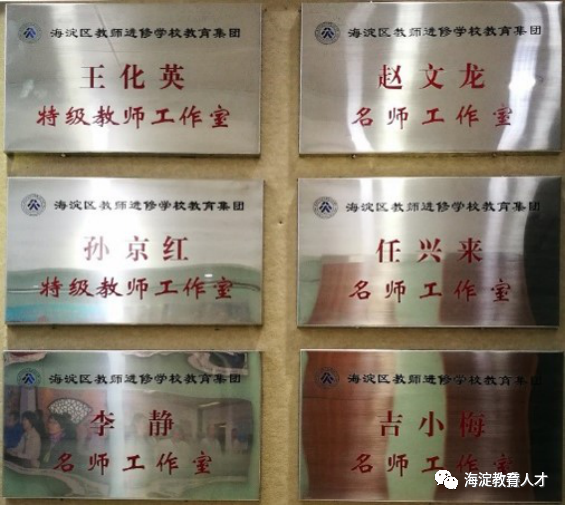 海淀区教师进修学校教育集团
王化英
特级教师工作室
海淀区教师进修学校教育集团
赵文龙
名师工作室
海淀区教师进修学校教育集团
孙京红
特级教师工作室
海淀区教师进修学校教育集团
任兴来
名师工作室
海淀区教师进修学校教育集团
李静
名师工作室
海淀区教师进修学校教育集团
吉小梅
名师工作室
海淀教育人才